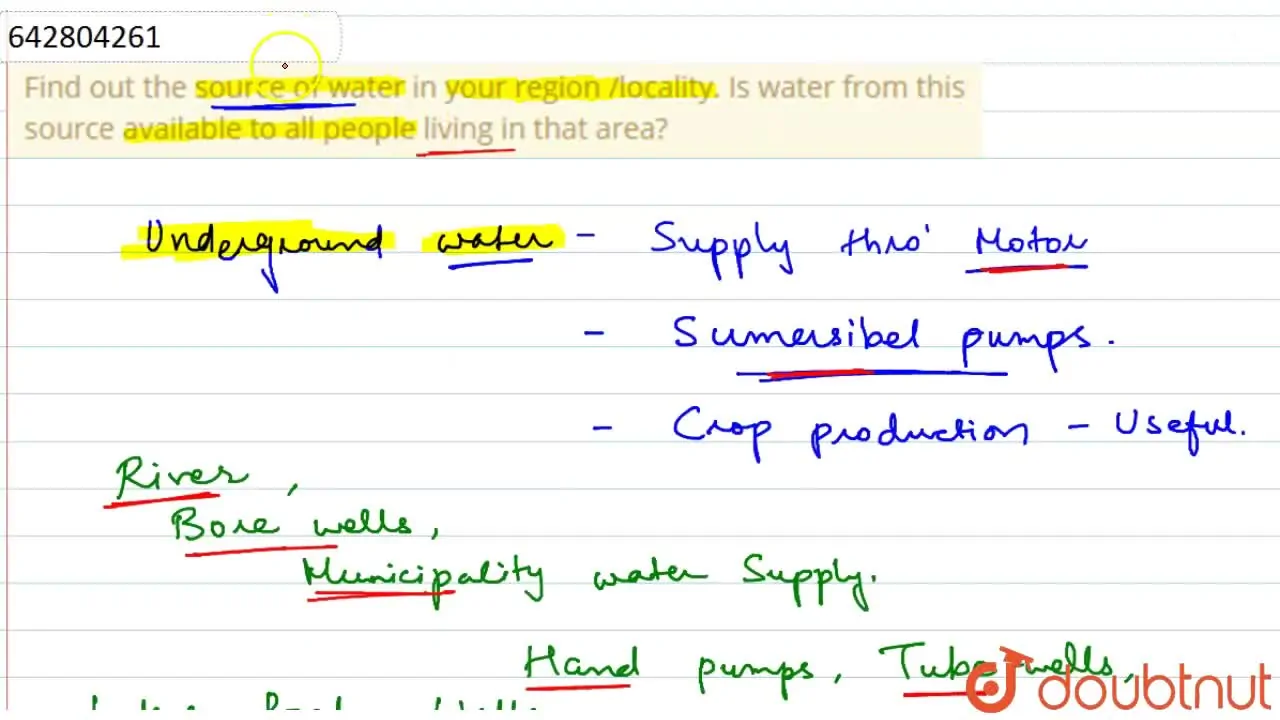 642804261
Find out the source of water in your region /locality. Is water from this
source available to all people living in that area?
Underground water - Supply thro' Motor
- Sumersibel pumps.
- Crop production - Useful.
River,
Bore wells,
Municipality water Supply.
Hand pumps, Tube wells,
doubtnut